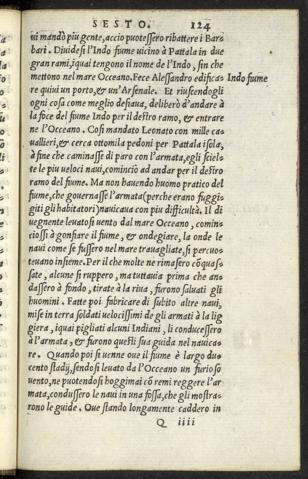 SESTO. 124
ui mandò piu gente, accio puotessero ribattere i Bar=
bari. Diuidesi l'Indo fiume uicino à Pattala in due
gran rami, iquai tengono il nome de l'Indo, fin che
mettono nel mare Oceano. Fece Alessandro edifica= Indo fiume
re quiui un porto, & un'Arsenale. Et riuscendogli
ogni cosa come meglio desiaua, deliberò d'andare à
la foce del fiume Indo per il destro ramo, & entrare
ne l'Oceano. Cosi mandato Leonato con mille ca=
uallieri, & cerca ottomila pedoni per Pattala isola,
à fine che caminasse di paro con l'armata, egli sciel=
te le piu ueloci naui, comincio ad andar per il destro
ramo del fiume. Ma non hauendo huomo pratico del
fiume, che gouernasse l'armata (perche erano fuggi=
giti gli habitatori) nauicaua con piu difficultà. Il di
uegnente leuatosi uento dal mare Oceano, comin=
ciossi à gonfiare il fiume, & ondegiare, la onde le
naui come se fussero nel mare trauagliate, si percuo=
teuano insieme. Per il che molte ne rimasero cōquas=
sate, alcune si ruppero, ma tuttauia prima che an=
dassero à fondo, tirate à la riua, furono saluati gli
huomini. Fatte poi fabricare di subito altre naui,
mise in terra soldati uelocissimi de gli armati à la lig
giera, iquai pigliati alcuni Indiani, li conducessero
à l'armata, & furono questi sua guida nel nauica=
re. Quando poi si uenne oue il fiume è largo du=
cento stadij, sendosi leuato da l'Oceano un furioso
uento, ne puotendosi hoggimai cō remi reggere l'ar
mata, condussero le naui in una fossa, che gli mostra=
rono le guide. Oue stando longamente caddero in
Q iiii